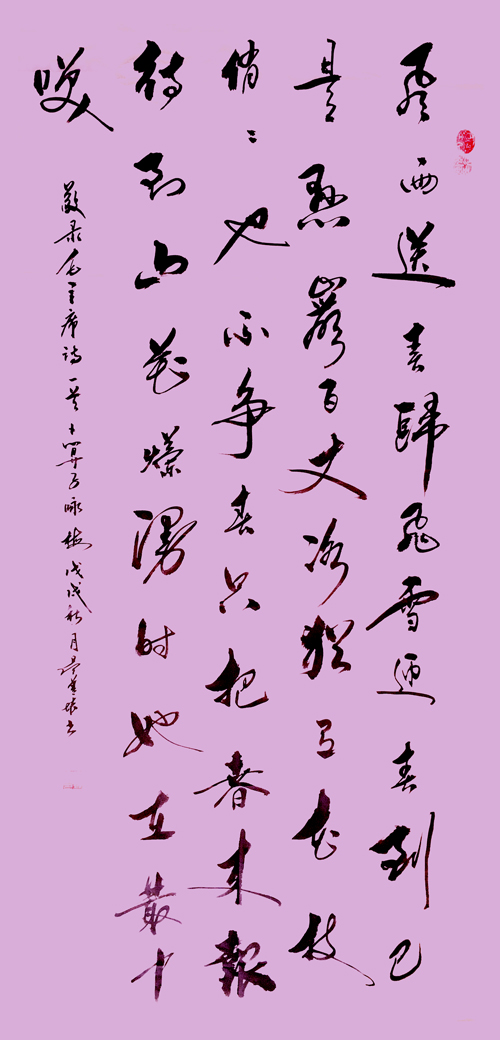 風雨送春歸飛雪迎春到已
是懸巖百丈冰猶有花枝
俏々也不争春只把春来報
待到山花爛漫时她在叢中
咲
敬录毛主席诗一首卜算子咏梅戊戌秋月书